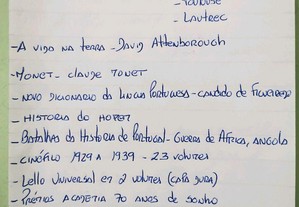 - Lautrec
- A vida na terra - David Attenborough
- Monet - Claude Monet
- Novo dicionario da lingua Portuguesa - Candido de Figueiredo
- HISTORIA DO
- Batalhas da Historia de Portugal - Guerra de Africa, Angola
- CINÉFILO 1929 A 1939 - 23 volumes
- Lello Universal em 2 volumes (capa dura)
- Prémios 70 anos de sonho